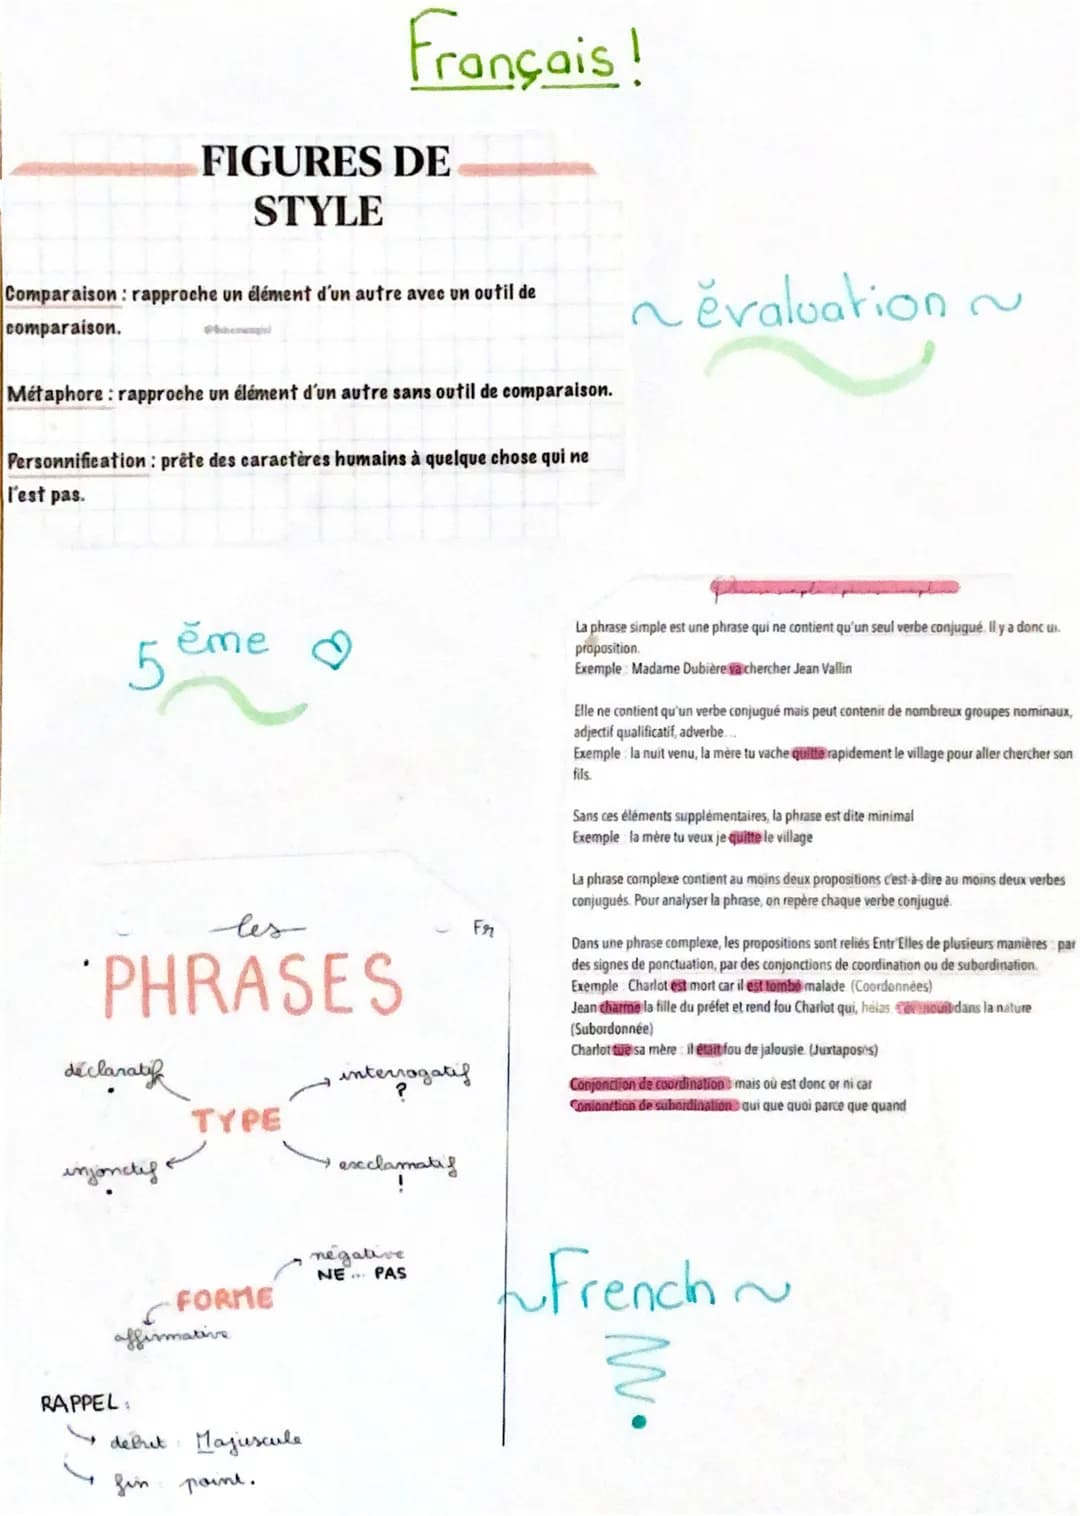 Français !
FIGURES DE
STYLE
Comparaison : rapproche un élément d'un autre avec un outil de
comparaison.
Métaphore : rapproche un élément d'un autre sans outil de comparaison.
Personnification : prête des caractères humains à quelque chose qui ne
l'est pas.
~ évaluation ~
5 ème
La phrase simple est une phrase qui ne contient qu'un seul verbe conjugué. Il y a donc
proposition.
Exemple : Madame Dubière va chercher Jean Vallin
Elle ne contient qu'un verbe conjugué mais peut contenir de nombreux groupes nominaux,
adjectif qualificatif, adverbe...
Exemple : la nuit venu, la mère tu vache quitte rapidement le village pour aller chercher son
fils.
Sans ces éléments supplémentaires, la phrase est dite minimal
Exemple : la mère tu veux je quitte le village
La phrase complexe contient au moins deux propositions c'est-à-dire au moins deux verbes
conjugués. Pour analyser la phrase, on repère chaque verbe conjugué.
Dans une phrase complexe, les propositions sont reliés Entr'Elles de plusieurs manières : par
des signes de ponctuation, par des conjonctions de coordination ou de subordination.
Exemple : Charlot est mort car il est tombé malade. (Coordonnées)
Jean charme la fille du préfet et rend fou Charlot qui, hélas, dans la nature
(Subordonnée)
Charlot tue sa mère : il était fou de jalousie. (Juxtaposés)
Conjonction de coordination : mais où est donc or ni car
Conjonction de subordination : qui que quoi parce que quand
les
Fr
PHRASES
déclaratif
.
interrogatif
?
TYPE
injonctif
.
exclamatif
!
négative
NE ... PAS
FORME
affirmative
RAPPEL :
début : Majuscule
fin : point.
~French~